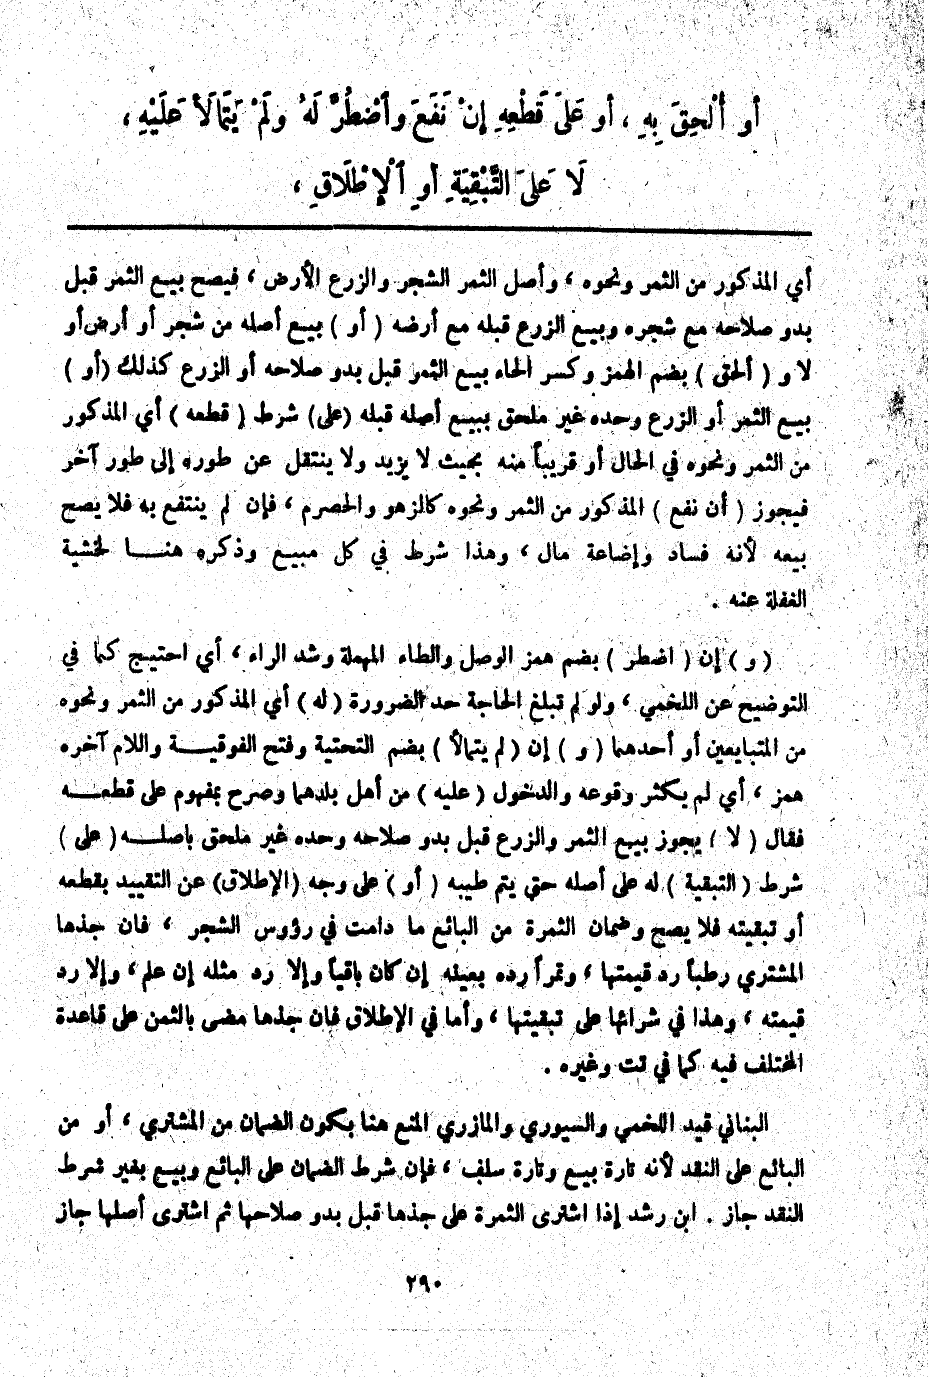 أو أُلْحِقَ بِهِ ، أو عَلَى قَطْعِهِ إِنْ نَفَعَ وأَضْطُرَّ لَهُ ولَمْ يُتَمَالَأْ عَلَيْهِ ،
لَا عَلَى التَّبْقِيَةِ أَوِ ٱلْإِطْلَاقِ ،
أي المذكور من الثمر ونحوه ، وأصل الثمر الشجر والزرع الأرض ، فيصح بيع الثمر قبل
بدو صلاحه مع شجره وبيع الزرع قبله مع أرضه ( أو ) بيع أصله من شجر أو أرض أو
لا و ( ألحق ) بضم الهمز وكسر الحاء بيع الثمر قبل بدو صلاحه أو الزرع كذلك (أو )
بيع الثمر أو الزرع وحده غير ملحق ببيع أصله قبله (على) شرط ( قطعه ) أي المذكور
من الثمر ونحوه في الحال أو قريباً منه بحيث لا يزيد ولا ينتقل عن طوره إلى طور آخر
فيجوز ( أن نفع ) المذكور من الثمر ونحوه كالزهو والحصرم ، فإن لم ينتفع به فلا يصح
بيعه لأنه فساد وإضاعة مال ، وهذا شرط في كل مبيع وذكره هنا لخشية
الغفلة عنه .
( و ) إن ( اضطر ) بضم همز الوصل والطاء المهملة وشد الراء ، أي احتيج كما في
التوضيح عن اللخمي ، ولو لم تبلغ الحاجة حد الضرورة ( له ) أي المذكور من الثمر ونحوه
من المتبايعين أو أحدهما ( و ) إن ( لم يتمالأ ) بضم التحتية وفتح الفوقية واللام آخره
همز ، أي لم يكثر وقوعه والدخول ( عليه ) من أهل بلدهما وصرح بمفهوم على قطعه
فقال ( لا ) يجوز بيع الثمر والزرع قبل بدو صلاحه وحده غير ملحق بأصله ( على )
شرط ( التبقية ) له على أصله حتى يتم طيبه ( أو ) على وجه (الإطلاق) عن التقييد بقطعه
أو تبقيته فلا يصح وضمان الثمرة من البائع ما دامت في رؤوس الشجر ، فان جذها
المشتري رطباً رد قيمتها ، وتمراً رده بعينه إن كان باقياً وإلا رد مثله إن علم ، وإلا رد
قيمته ، وهذا في شرائها على تبقيتها ، وأما في الإطلاق فان جذها مضى بالثمن على قاعدة
المختلف فيه كما في تت وغيره .
البناني قيد اللخمي والسيوري والمازري المنع هنا بكون الضمان من المشتري ، أو من
البائع على النقد لأنه تارة بيع وتارة سلف ، فإن شرط الضمان على البائع وبيع بغير شرط
النقد جاز . ابن رشد إذا اشترى الثمرة على جذها قبل بدو صلاحها ثم اشترى أصلها جاز
٢٩٠